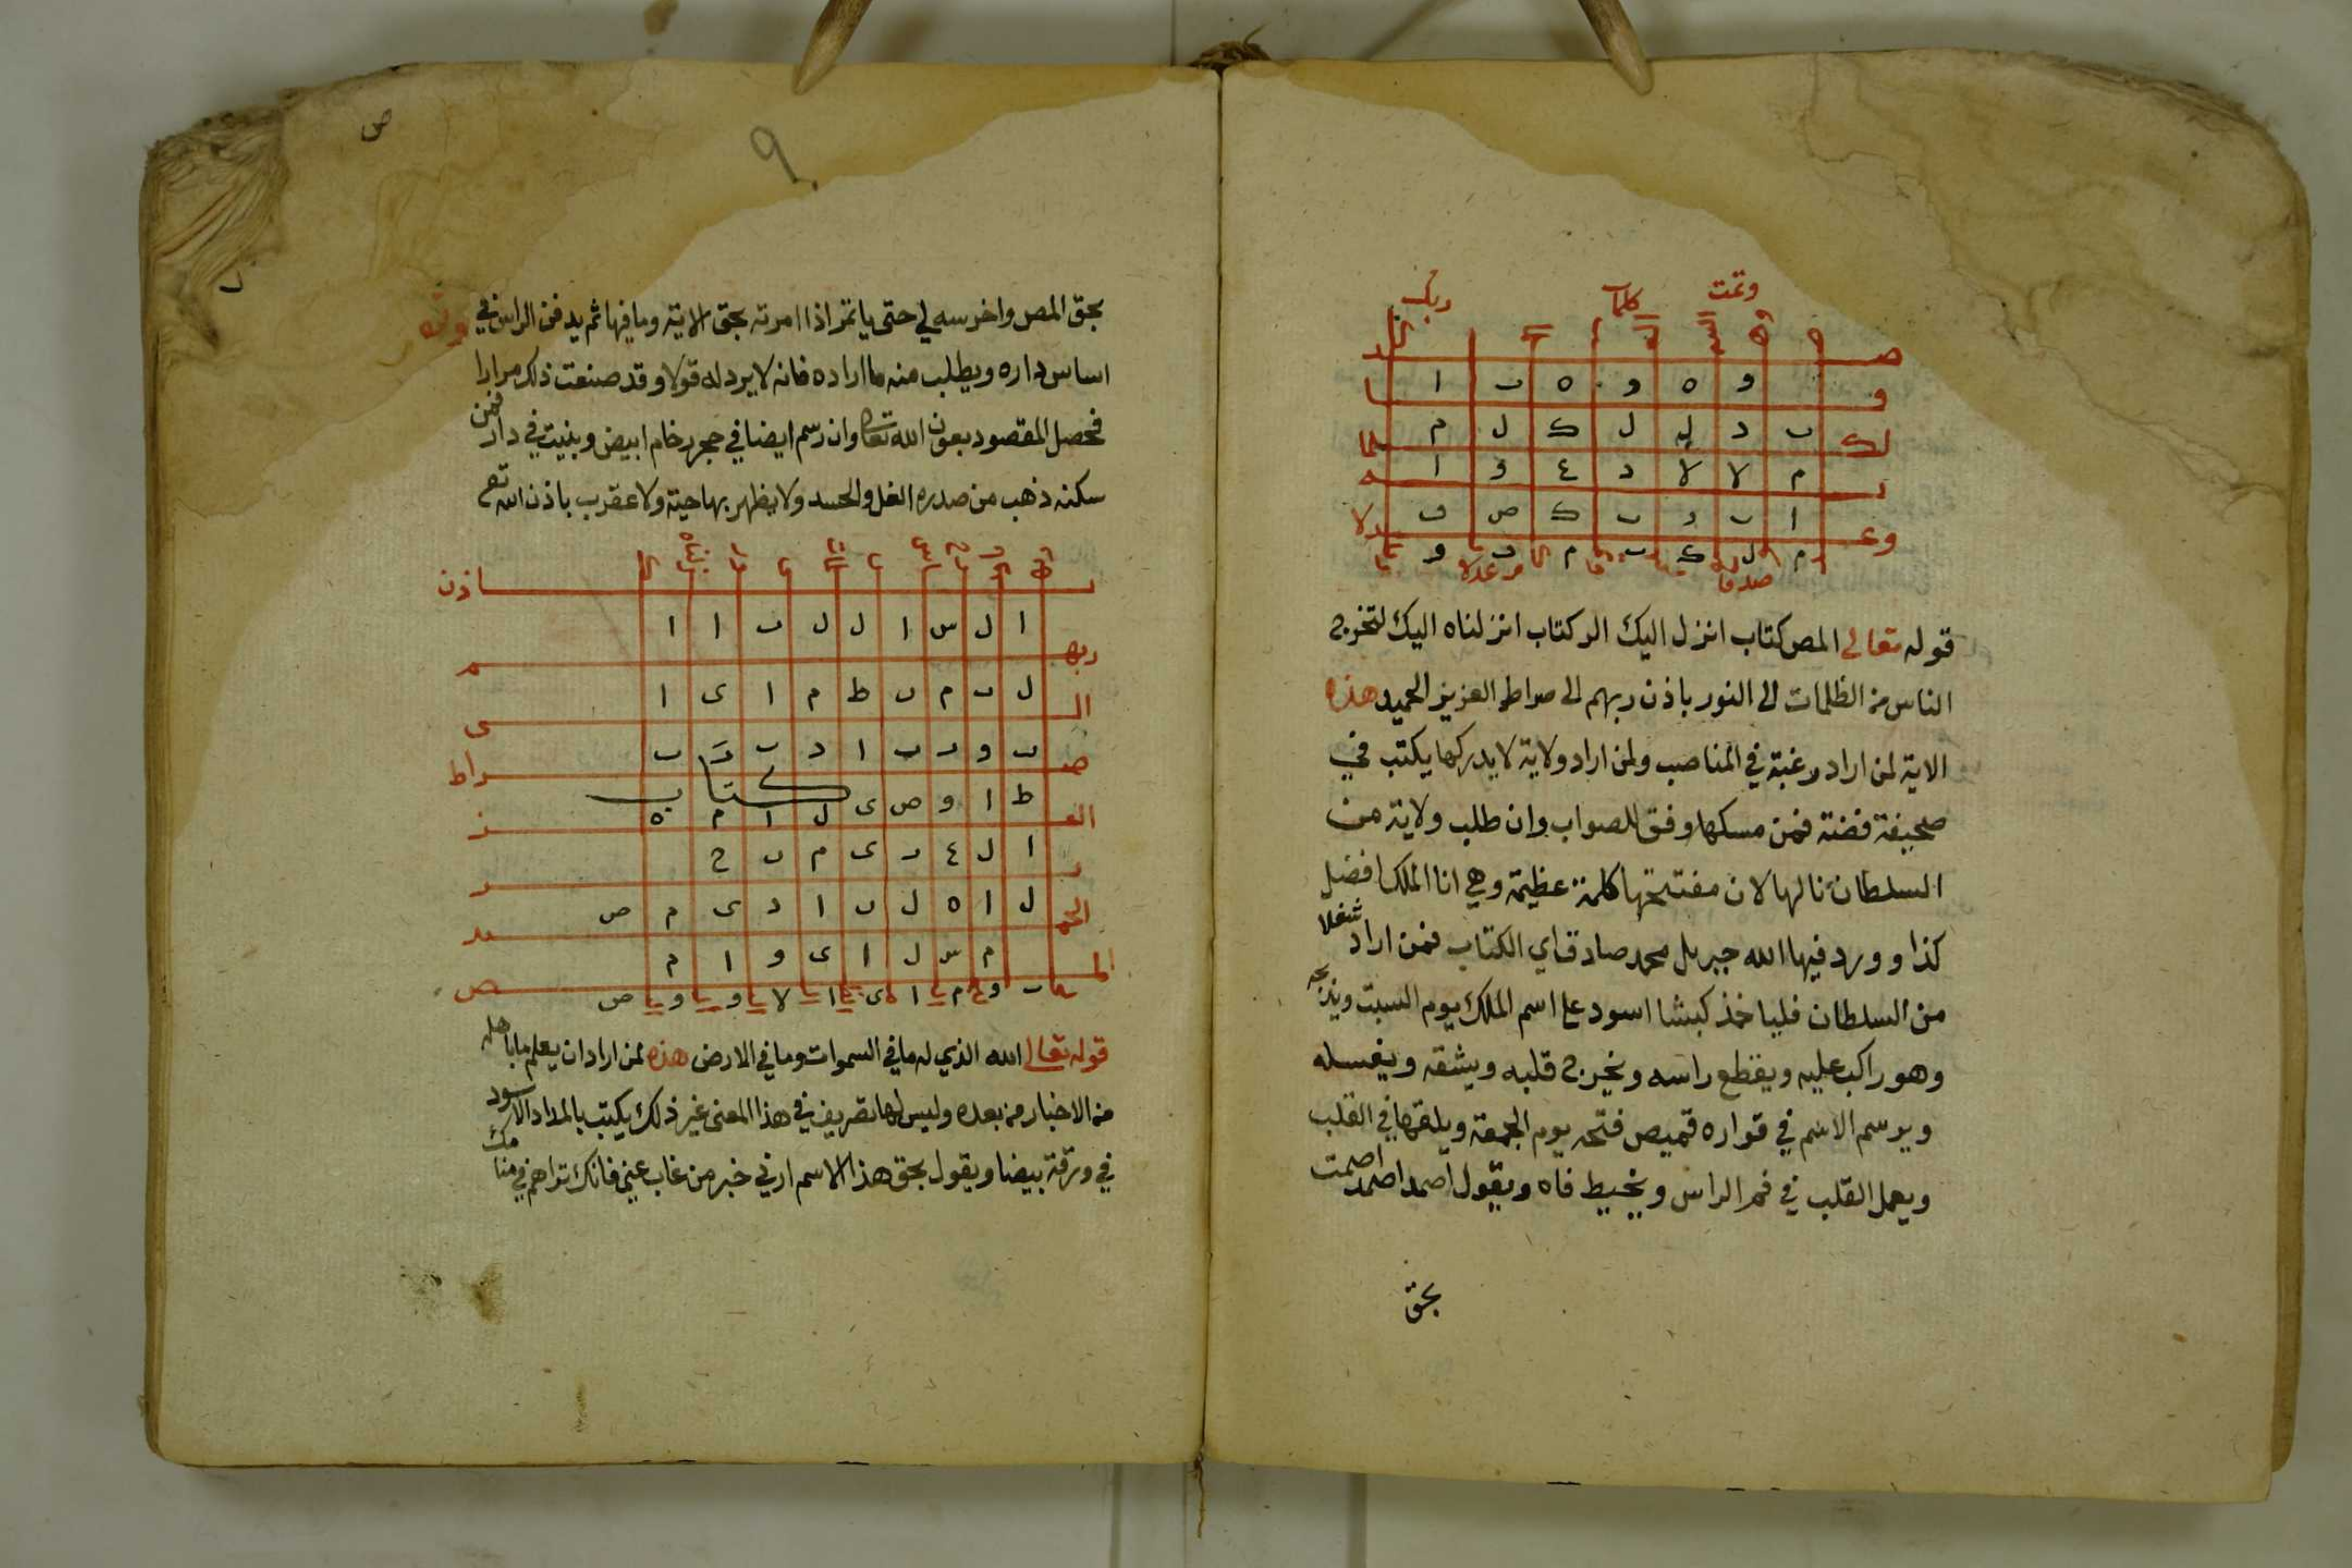 وتمت كلمات ربك
و ه و ه ب ا
ب د ل ل ك ل م
م لا لا د ع و ا
ا ب د ب ك ص ف
م ل ك ب م د و
قوله تعالى المص كتاب انزل اليك الر كتاب انزلناه اليك لتخرج
الناس من الظلمات الى النور باذن ربهم الى صراط العزيز الحميد هذه
الاية لمن اراد رغبة في المناصب ولمن اراد ولاية لا يدركها يكتب في
صحيفة فضة فمن مسكها وفق للصواب وان طلب ولاية من
السلطان نالها لان مفتتحها كلمة عظيمة وهي انا الملك افضل
كذا وورد فيها الله جبريل محمد صادق اي الكتاب فمن اراد شغلا
من السلطان فلياخذ كبشا اسود على اسم الملك يوم السبت ويذبحه
وهو راكب عليه ويقطع راسه ويخرج قلبه ويشقه ويغسله
ويرسم الاسم في قواره قميص فتحه يوم الجمعة ويلقها في القلب
ويعمل القلب في فم الراس ويخيط فاه ويقول اصمد اصمد اصمت
بحق
ص
٩
بحق المص واخرسه لي حتى ياتمر اذا امرته بحق الاية وما فيها ثم يدفن الراس في
اساس داره ويطلب منه ما اراده فانه لا يرد له قولا وقد صنعت ذلك مرارا
فحصل المقصود بعون الله تعالى وان رسم ايضا في حجر رخام ابيض وبنيت في دار فمن
سكنه ذهب من صدره الغل والحسد ولا يظهر بها حية ولا عقرب باذن الله تع
اذن
ا ل س ا ل ل ب ا ا
ربه م
ل ب م ن ط م ا ى ا
الى
ب و ر ب ا د ب ك ب
صراط
ط ا و ص ى ل ا م ه
كتاب
العز
ا ل ع ر ى م ن ح
ل ا ه ل ن ا د ى م ص
الحميد
م س ل ا ى و ا م
المص
قوله تعالى الله الذي له ما في السموات وما في الارض هذه لمن اراد ان يعلم ما باهله
من الاخبار من بعده وليس لها تصريف في هذا المعنى غير ذلك يكتب بالمداد الاسود
في ورقة بيضا ويقول بحق هذا الاسم ارني خبر من غاب عني فانك تراهم في منامك